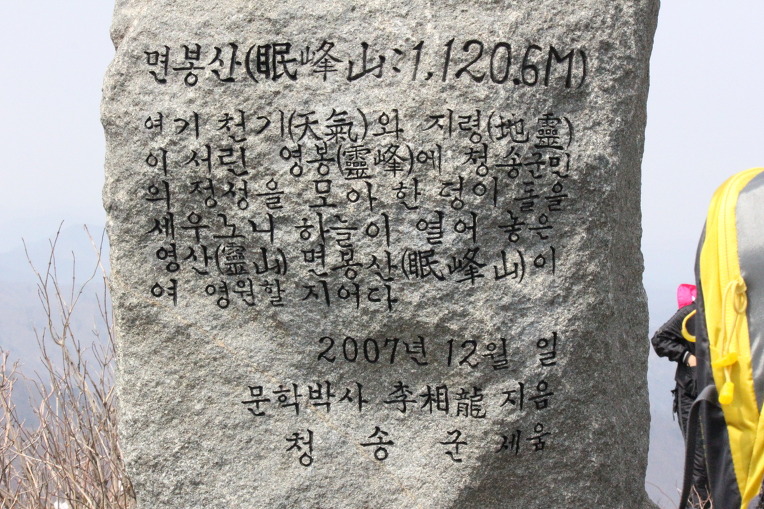 면봉산(眠峰山:1,120.6M)
여기 천기(天氣)와 지령(地靈)
이 서린 영봉(靈峰)에 청송군민
의 정성을 모아 한 덩이 돌을
세우노니 하늘이 열어 놓은
영산(靈山) 면봉산(眠峰山)이
여 영원할 지어다
2007년 12월 일
문학박사 李相龍 지음
청송군 세움